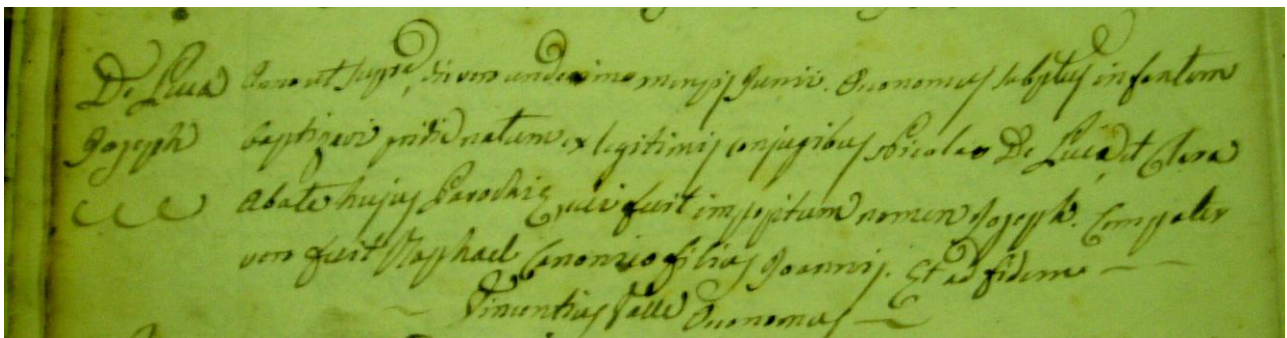 De Luca Anno ut supra, die vero undecimo mensis Junii. Economus subptus infantem
Joseph baptizavi pridie natum ex legitimis conjugibus Nicolao De Luca, et Clara
Abate hujus Parochiæ, cui fuit impositum nomen Joseph. Compater
vero fuit Raphael Canonico filius Joannis. Et ad fidem
Vincentius Valle Economus